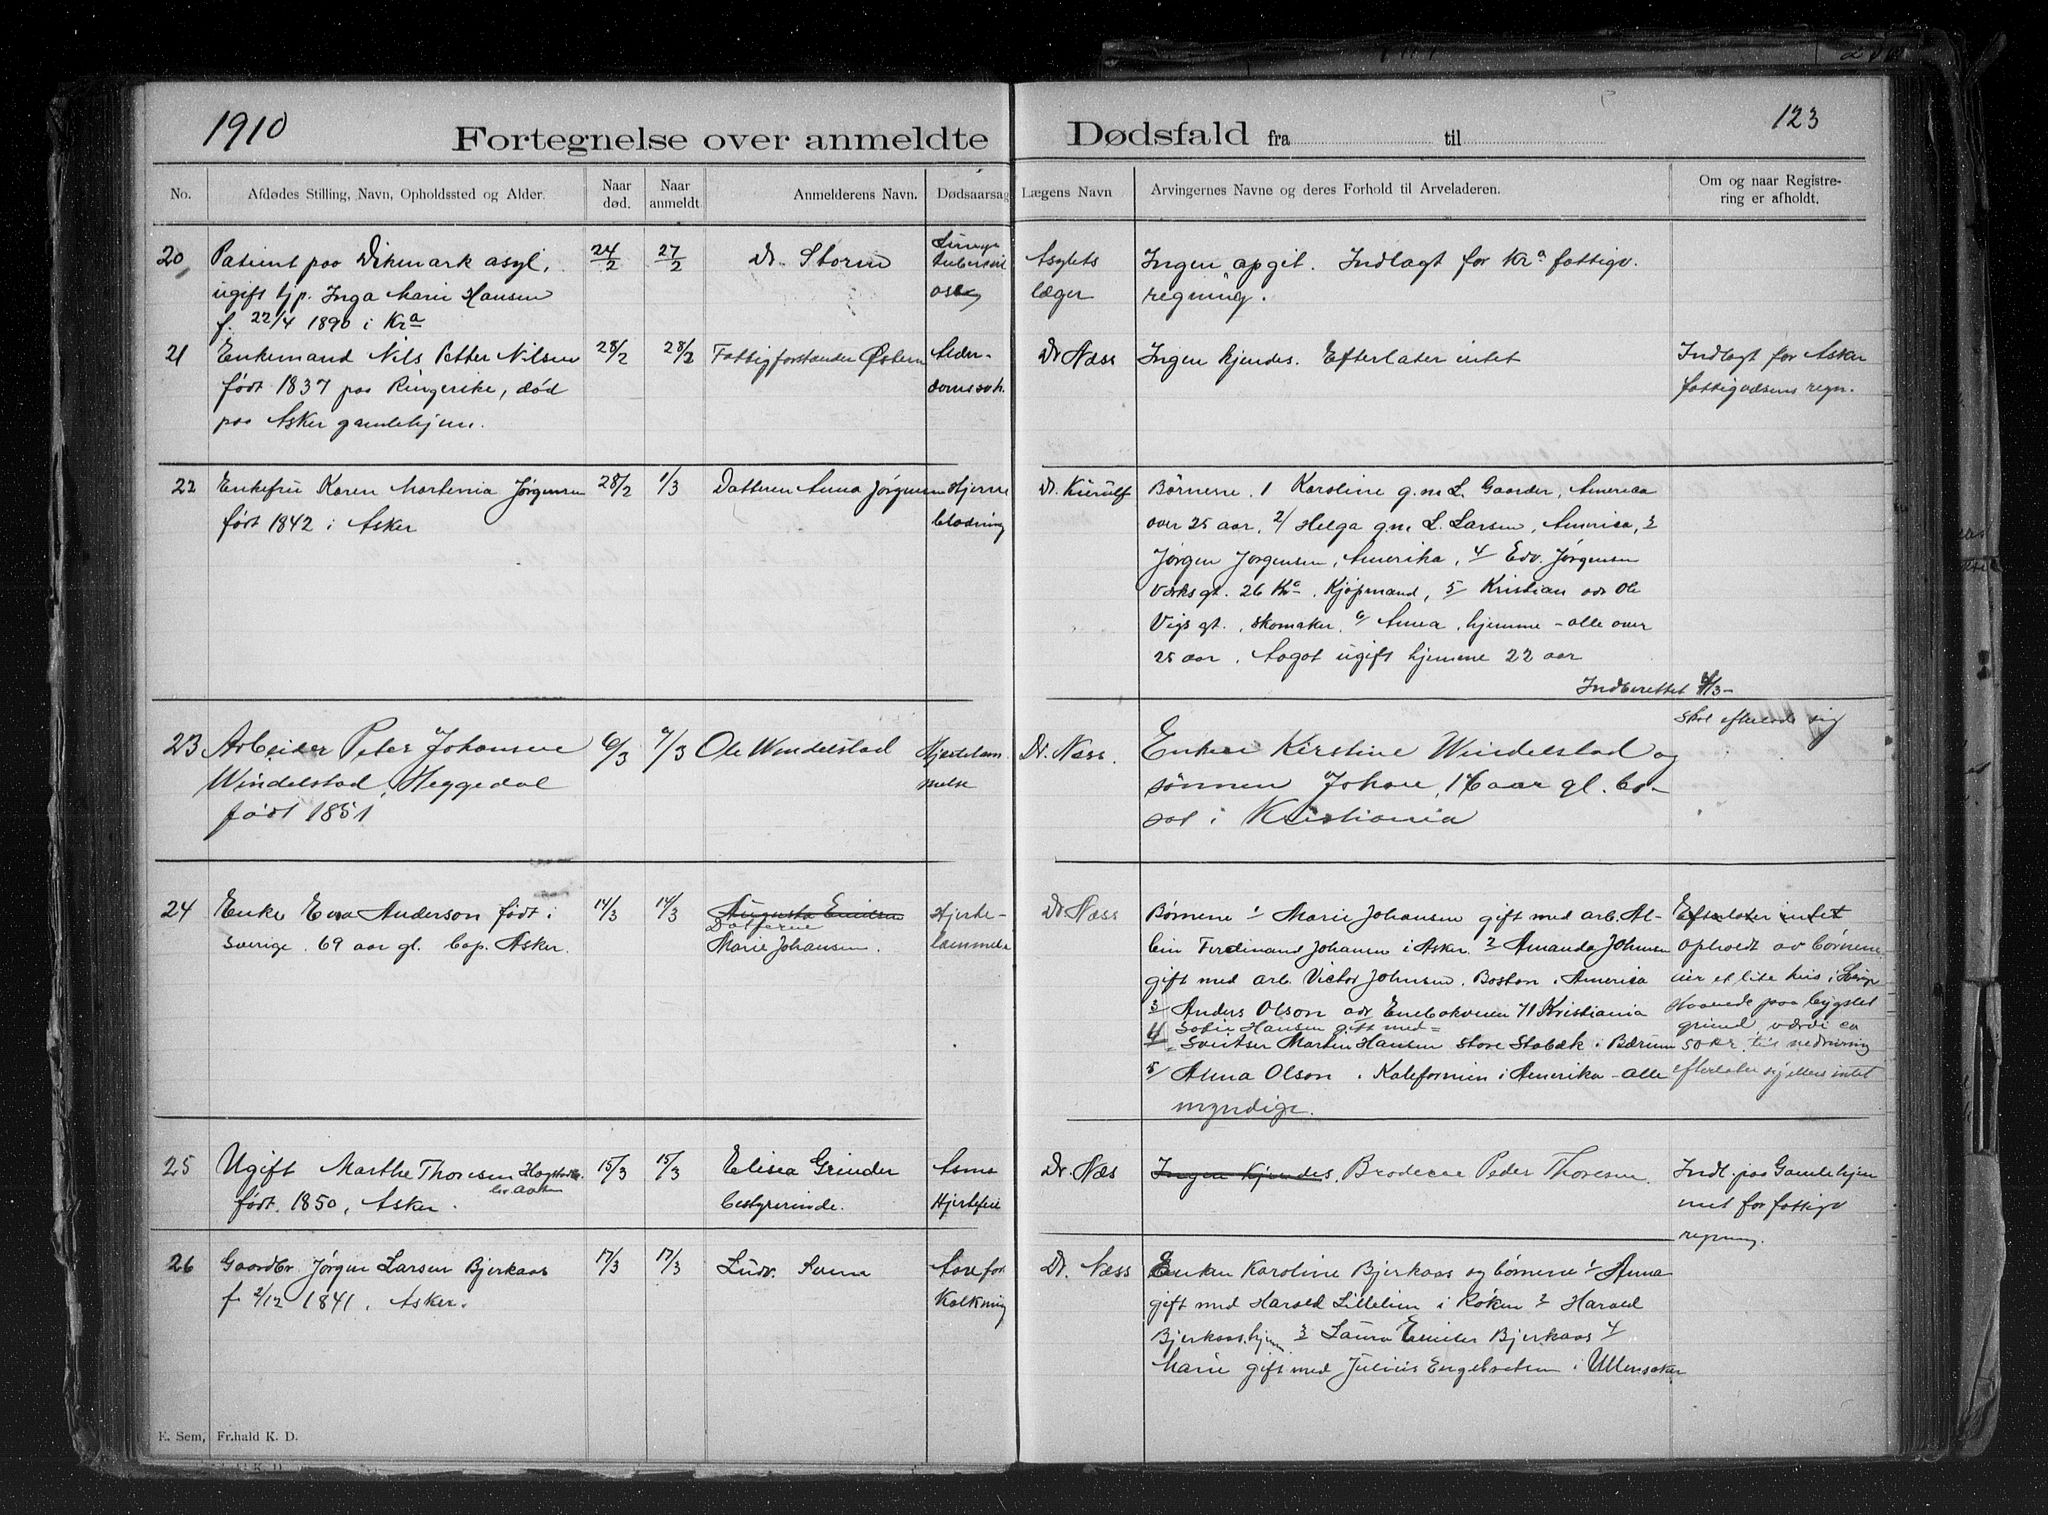 1910
Fortegnelse over anmeldte Dødsfald fra til
123
No. Afdødes Stilling, Navn, Opholdssted og Alder. Naar død. Naar anmeldt Anmelderens Navn. Dødsaarsag Lægens Navn Arvingernes Navne og deres Forhold til Arveladeren. Om og naar Registrering er afholdt.
20 Patient paa Dikmark asyl, 24/2 27/2 Dr. Storm Lunge Asylets Ingen opgit. Indlagt for Kra fattigv.
ugift tjp. Inga Marie Hansen tuberkul læger regning.
f. 22/4 1890 i Kra ose
21 Enkemand Nils Petter Nilsen 28/2 28/2 Fattigforstander Østern Alder- Dr Næss Ingen kjendes. Efterlater intet Indlagt for Asker
født 1837 paa Ringerike, død domssvk. fattigvæsens regn.
paa Asker gamlehjem.
22 Enkefru Karen Martinia Jørgensen 28/2 1/3 Datteren Anna Jørgensen Hjerne Dr. Kierulf Børnene, 1 Karoline g.m L. Gaarder, America
født 1842 i Asker blødning over 25 aar, 2/ Helga gm L. Larsen, America, 3
Jørgen Jørgensen, Amerika, 4/ Edv. Jørgensen
Værksgt. 26 Kra. Kjøpmand, 5/ Kristian adr Ole
Vigs gt., skomaker, 6/ Anna, hjemme - alle over
25 aar. Aagot ugift hjemme 22 aar
Indberettet 4/3-
23 Arbeider Peter Johansen 6/3 6/3 Ole Windelstad Hjertelam- Dr. Næss. Enken Kirstine Windelstad og skal efterlade sig
Windelstad, Heggedal melse sønnen Johan, 16 aar gl. bo-
født 1851 sat i Kristiania
24 Enke Eva Anderson født i 14/3 14/3 Augusta Emilsen Hjerte- Dr Næss Børnene 1 Marie Johansen gift med arb. Al- Efterlater intet
Datteren
Sverige. 69 aar gl. bop. Asker. Marie Johansen. lammelse bin Ferdinand Johansen i Asker 2 Amanda Johnsen opholdt av børnene
gift med arb. Victor Johnsen. Boston i America eier et lite hus i Sverige
3 Anders Olson adr Enebakveien 71 Kristiania staaende paa bygslet
4 Sofie Hansen gift med grund, værdi ca
Sveitser Marten Hansen Store Stabæk i Bærum 50 kr. til nedrivning
5/ Anna Olson. Kalefornien i Amerika - alle efterlater sig ellers intet
myndige.
25 Ugift Marthe Thoresen 15/3 15/3 Elisea Grinder Asma Dr. Næs Ingen kjendes. Broderen Peder Thoresen. Indl. paa Gamlehjem
født 1850, Asker. bestyrerinde. Hjertefeil met for fattigv
regning.
26 Gaardbr. Jørgen Larsen Bjerkaas 17/3 17/3 Ludv. Aarefor Dr. Næss Enken Karoline Bjerkaas og børnene 1/ Anna
f. 2/12 1841, Asker. Kalkning gift med Harald Lillelien i Røken 2 Harald
Bjerkaas hjem 3 Laura Emilie Bjerkaas 4
Marie gift med Julius Engebretsen i Ullensaker
E. Sem, Fr.hald K. D.